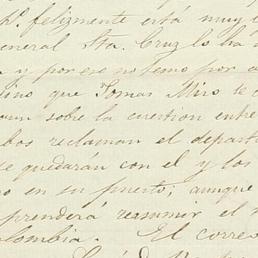 felizmente está muy
General Sta. Cruz lo ha
y por eso no temo por
sino que Tomas Miro te
sobre la cuestion entre
bos reclaman el depart
se quedarán con el y los
o en su puerto; aunque
prenderá reasumir el
olombia. El correo